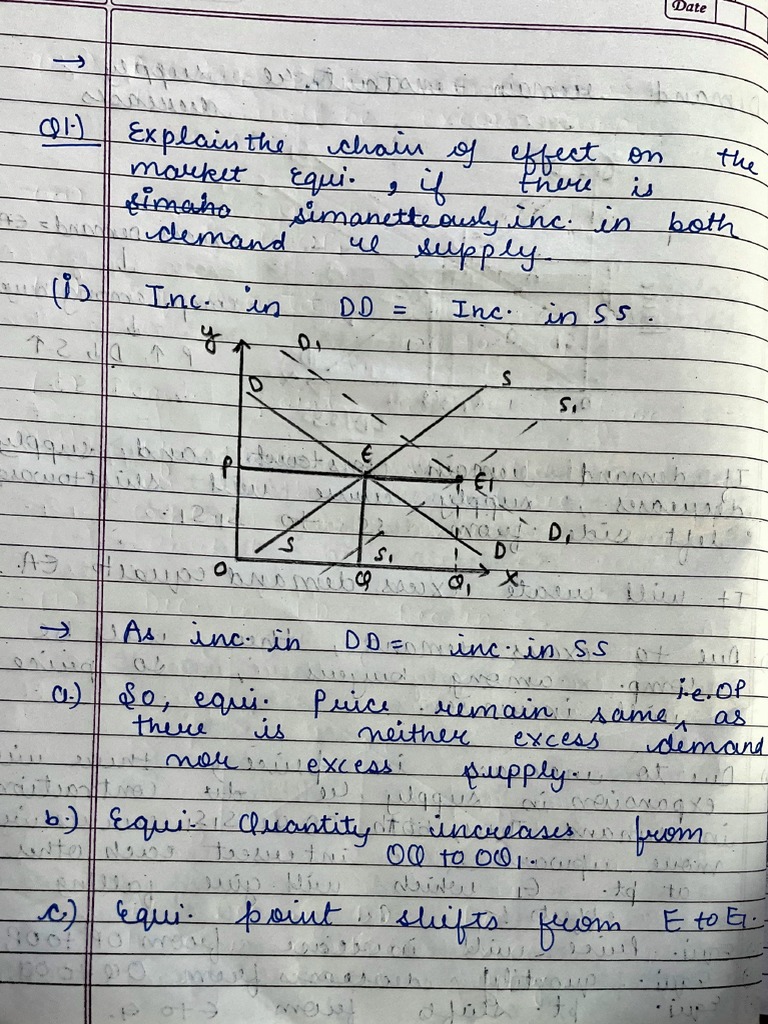 Date
→
Q1.) Explain the chain of effect on the
market equi. , if there is
simaho simanetteously inc. in both
demand ve supply.
(i) Inc. in DD = Inc. in SS.
y D1
D S
S1
E
P E1
D1
S S1 D
O Q Q1 X
→ As inc. in DD = inc. in SS
a.) So, equi. Price remain same, i.e. OP as
there is neither excess demand
nor excess supply.
b.) Equi. Quantity increases from
OQ to OQ1.
c.) Equi. point shifts from E to E1.